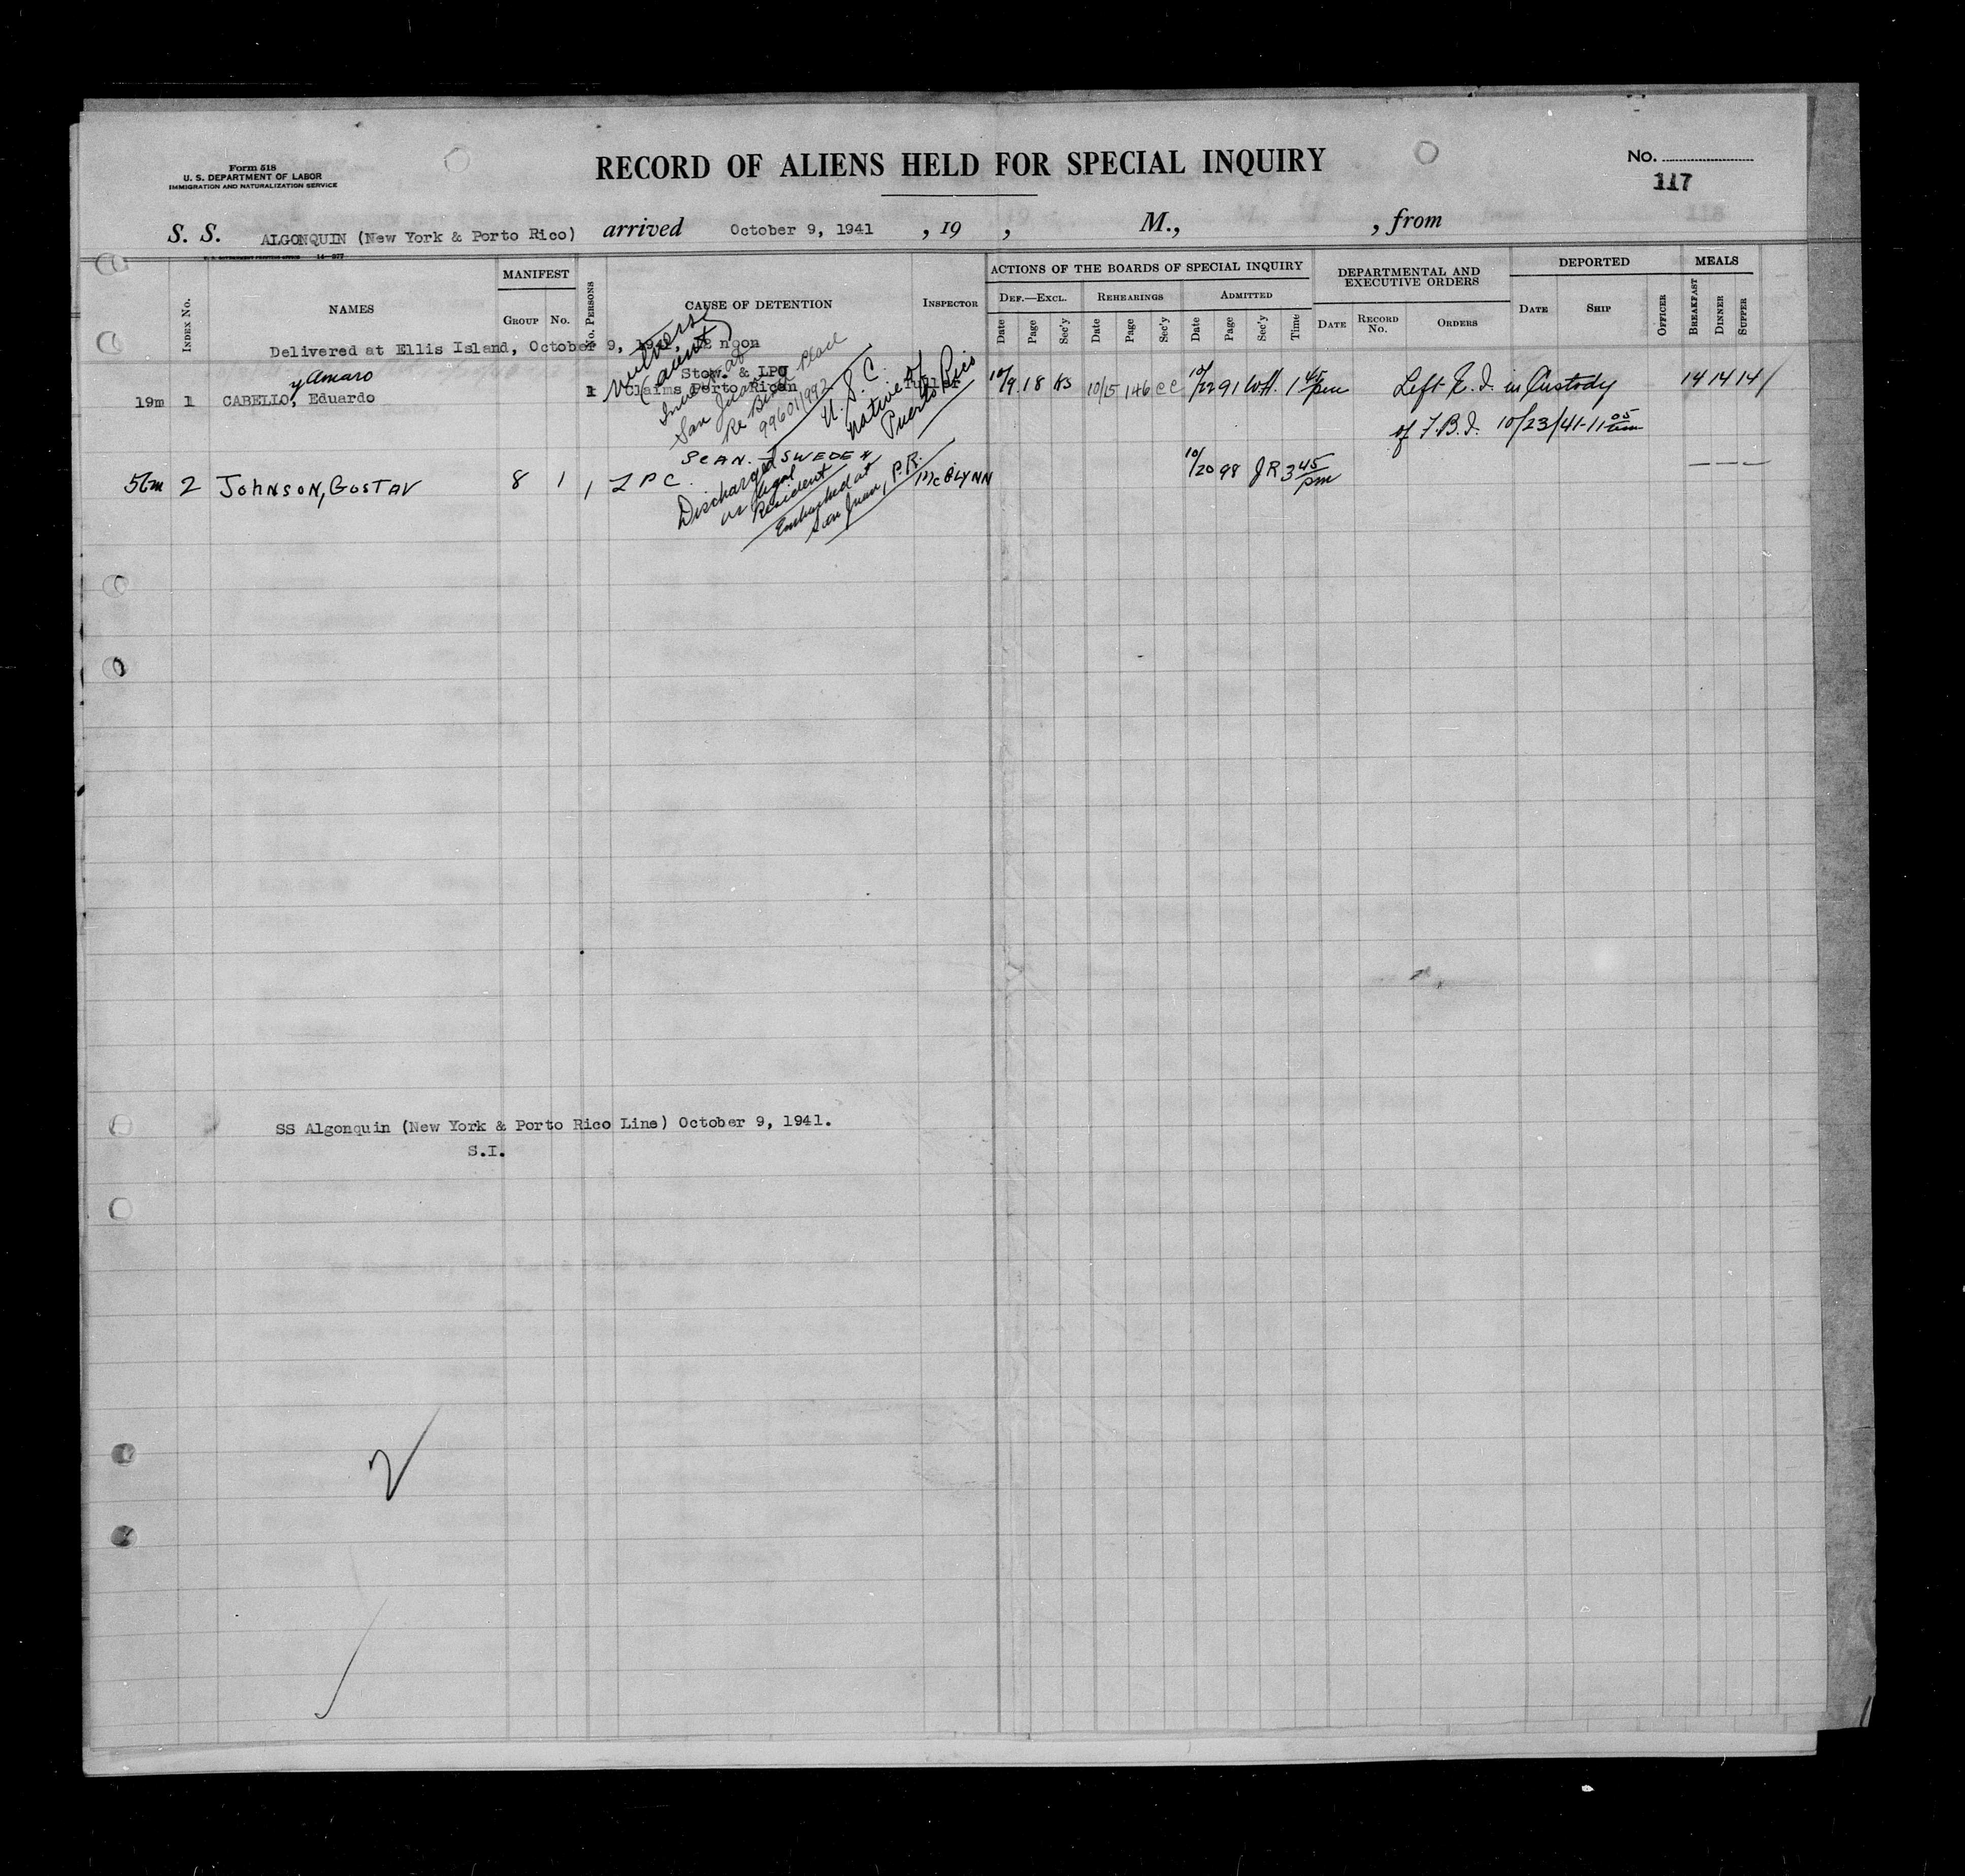 Form 518
U. S. DEPARTMENT OF LABOR
IMMIGRATION AND NATURALIZATION SERVICE
RECORD OF ALIENS HELD FOR SPECIAL INQUIRY
No.
117
S. S. ALGONQUIN (New York & Porto Rico) arrived October 9, 1941 , 19 , M., , from
14—977
Index No.
NAMES
MANIFEST
Group
No.
No. Persons
CAUSE OF DETENTION
Inspector
ACTIONS OF THE BOARDS OF SPECIAL INQUIRY
Def.—Excl.
Rehearings
Admitted
Date Page Sec'y Date Page Sec'y Date Page Sec'y Time
DEPARTMENTAL AND
EXECUTIVE ORDERS
Date
Record
No.
Orders
DEPORTED
Date
Ship
Officer
MEALS
Breakfast
Dinner
Supper
Delivered at Ellis Island, October 9, 1941, 12 noon
y Amaro
19m 1 CABELLO, Eduardo
1
Stow. & LPC
Claims Porto Rican
(aunt)
San Juan
Re Birth Place
99601/992
U. S. C.
native of
Puerto Rico
10/9 18 KS 10/15 146 CC 10/22 91 WH. 1 45 pm
Left E. I. in Custody
of F.B.I. 10/23/41-11 05 am
14 14 14
56m 2 JOHNSON, GUSTAV 8 1 1 L P C.
SCAN. - SWEDEN
Discharged
as legal
Resident
Embarked at
San Juan, P.R.
McGLYNN
10/20 98 JR 3 45 pm
— — —
SS Algonquin (New York & Porto Rico Line) October 9, 1941.
S.I.
2